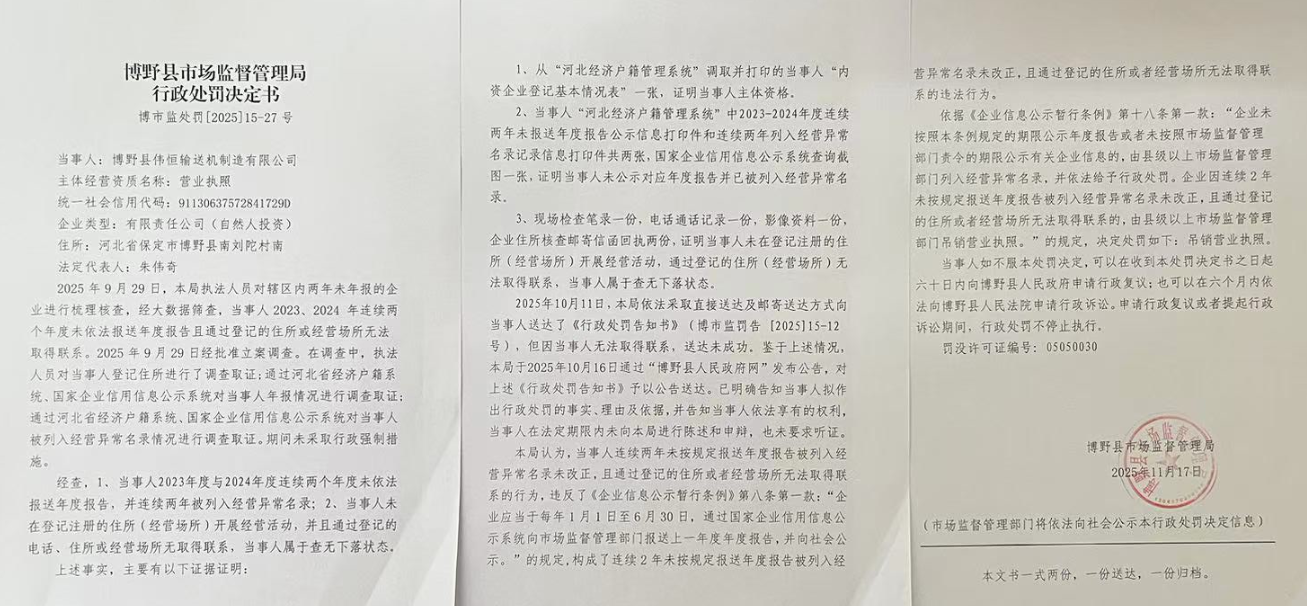 博野县市场监督管理局
行政处罚决定书
博市监处罚[2025]15-27 号
当事人：博野县伟恒输送机制造有限公司
主体经营资质名称：营业执照
统一社会信用代码：91130637572841729D
企业类型：有限责任公司（自然人投资）
住所：河北省保定市博野县南刘陀村南
法定代表人：朱伟奇
2025 年 9 月 29 日，本局执法人员对辖区内两年未年报的企
业进行梳理核查，经大数据筛查，当事人 2023、2024 年连续两
个年度未依法报送年度报告且通过登记的住所或经营场所无法
取得联系。2025 年 9 月 29 日经批准立案调查。在调查中，执法
人员对当事人登记住所进行了调查取证；通过河北省经济户籍系
统、国家企业信用信息公示系统对当事人年报情况进行调查取证；
通过河北省经济户籍系统、国家企业信用信息公示系统对当事人
被列入经营异常名录情况进行调查取证。期间未采取行政强制措
施。
经查，1、当事人2023年度与2024年度连续两个年度未依法
报送年度报告，并连续两年被列入经营异常名录；2、当事人未
在登记注册的住所（经营场所）开展经营活动，并且通过登记的
电话、住所或经营场所无取得联系，当事人属于查无下落状态。
上述事实，主要有以下证据证明：
1、从“河北经济户籍管理系统”调取并打印的当事人“内
资企业登记基本情况表”一张，证明当事人主体资格。
2、当事人“河北经济户籍管理系统”中2023-2024年度连续
两年未报送年度报告公示信息打印件和连续两年列入经营异常
名录记录信息打印件共两张，国家企业信用信息公示系统查询截
图一张，证明当事人未公示对应年度报告并已被列入经营异常名
录。
3、现场检查笔录一份，电话通话记录一份，影像资料一份，
企业住所核查邮寄信函回执两份，证明当事人未在登记注册的住
所（经营场所）开展经营活动，通过登记的住所（经营场所）无
法取得联系，当事人属于查无下落状态。
2025年10月11日，本局依法采取直接送达及邮寄送达方式向
当事人送达了《行政处罚告知书》（博市监罚告 [2025]15-12
号），但因当事人无法取得联系，送达未成功。鉴于上述情况，
本局于2025年10月16日通过“博野县人民政府网”发布公告，对
上述《行政处罚告知书》予以公告送达。已明确告知当事人拟作
出行政处罚的事实、理由及依据，并告知当事人依法享有的权利，
当事人在法定期限内未向本局进行陈述和申辩，也未要求听证。
本局认为，当事人连续两年未按规定报送年度报告被列入经
营异常名录未改正，且通过登记的住所或者经营场所无法取得联
系的行为，违反了《企业信息公示暂行条例》第八条第一款：“企
业应当于每年 1 月 1 日至 6 月 30 日，通过国家企业信用信息公
示系统向市场监督管理部门报送上一年度年度报告，并向社会公
示。”的规定，构成了连续 2 年未按规定报送年度报告被列入经
营异常名录未改正，且通过登记的住所或者经营场所无法取得联
系的违法行为。
依据《企业信息公示暂行条例》第十八条第一款：“企业未
按照本条例规定的期限公示年度报告或者未按照市场监督管理
部门责令的期限公示有关企业信息的，由县级以上市场监督管理
部门列入经营异常名录，并依法给予行政处罚。企业因连续 2 年
未按规定报送年度报告被列入经营异常名录未改正，且通过登记
的住所或者经营场所无法取得联系的，由县级以上市场监督管理
部门吊销营业执照。”的规定，决定处罚如下：吊销营业执照。
当事人如不服本处罚决定，可以在收到本处罚决定书之日起
六十日内向博野县人民政府申请行政复议；也可以在六个月内依
法向博野县人民法院申请行政诉讼。申请行政复议或者提起行政
诉讼期间，行政处罚不停止执行。
罚没许可证编号：05050030
博野县市场监督管理局
2025年11月17日
（市场监督管理部门将依法向社会公示本行政处罚决定信息）
本文书一式两份，一份送达，一份归档。